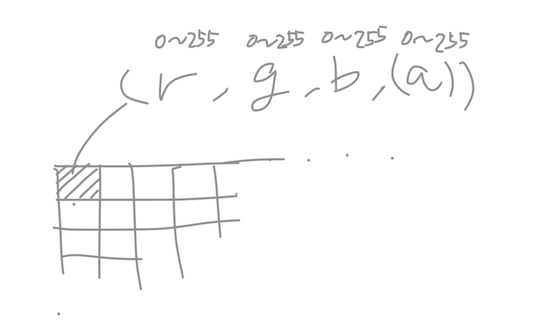 0~255 0~255 0~255 0~255
(r, g, b, (a))